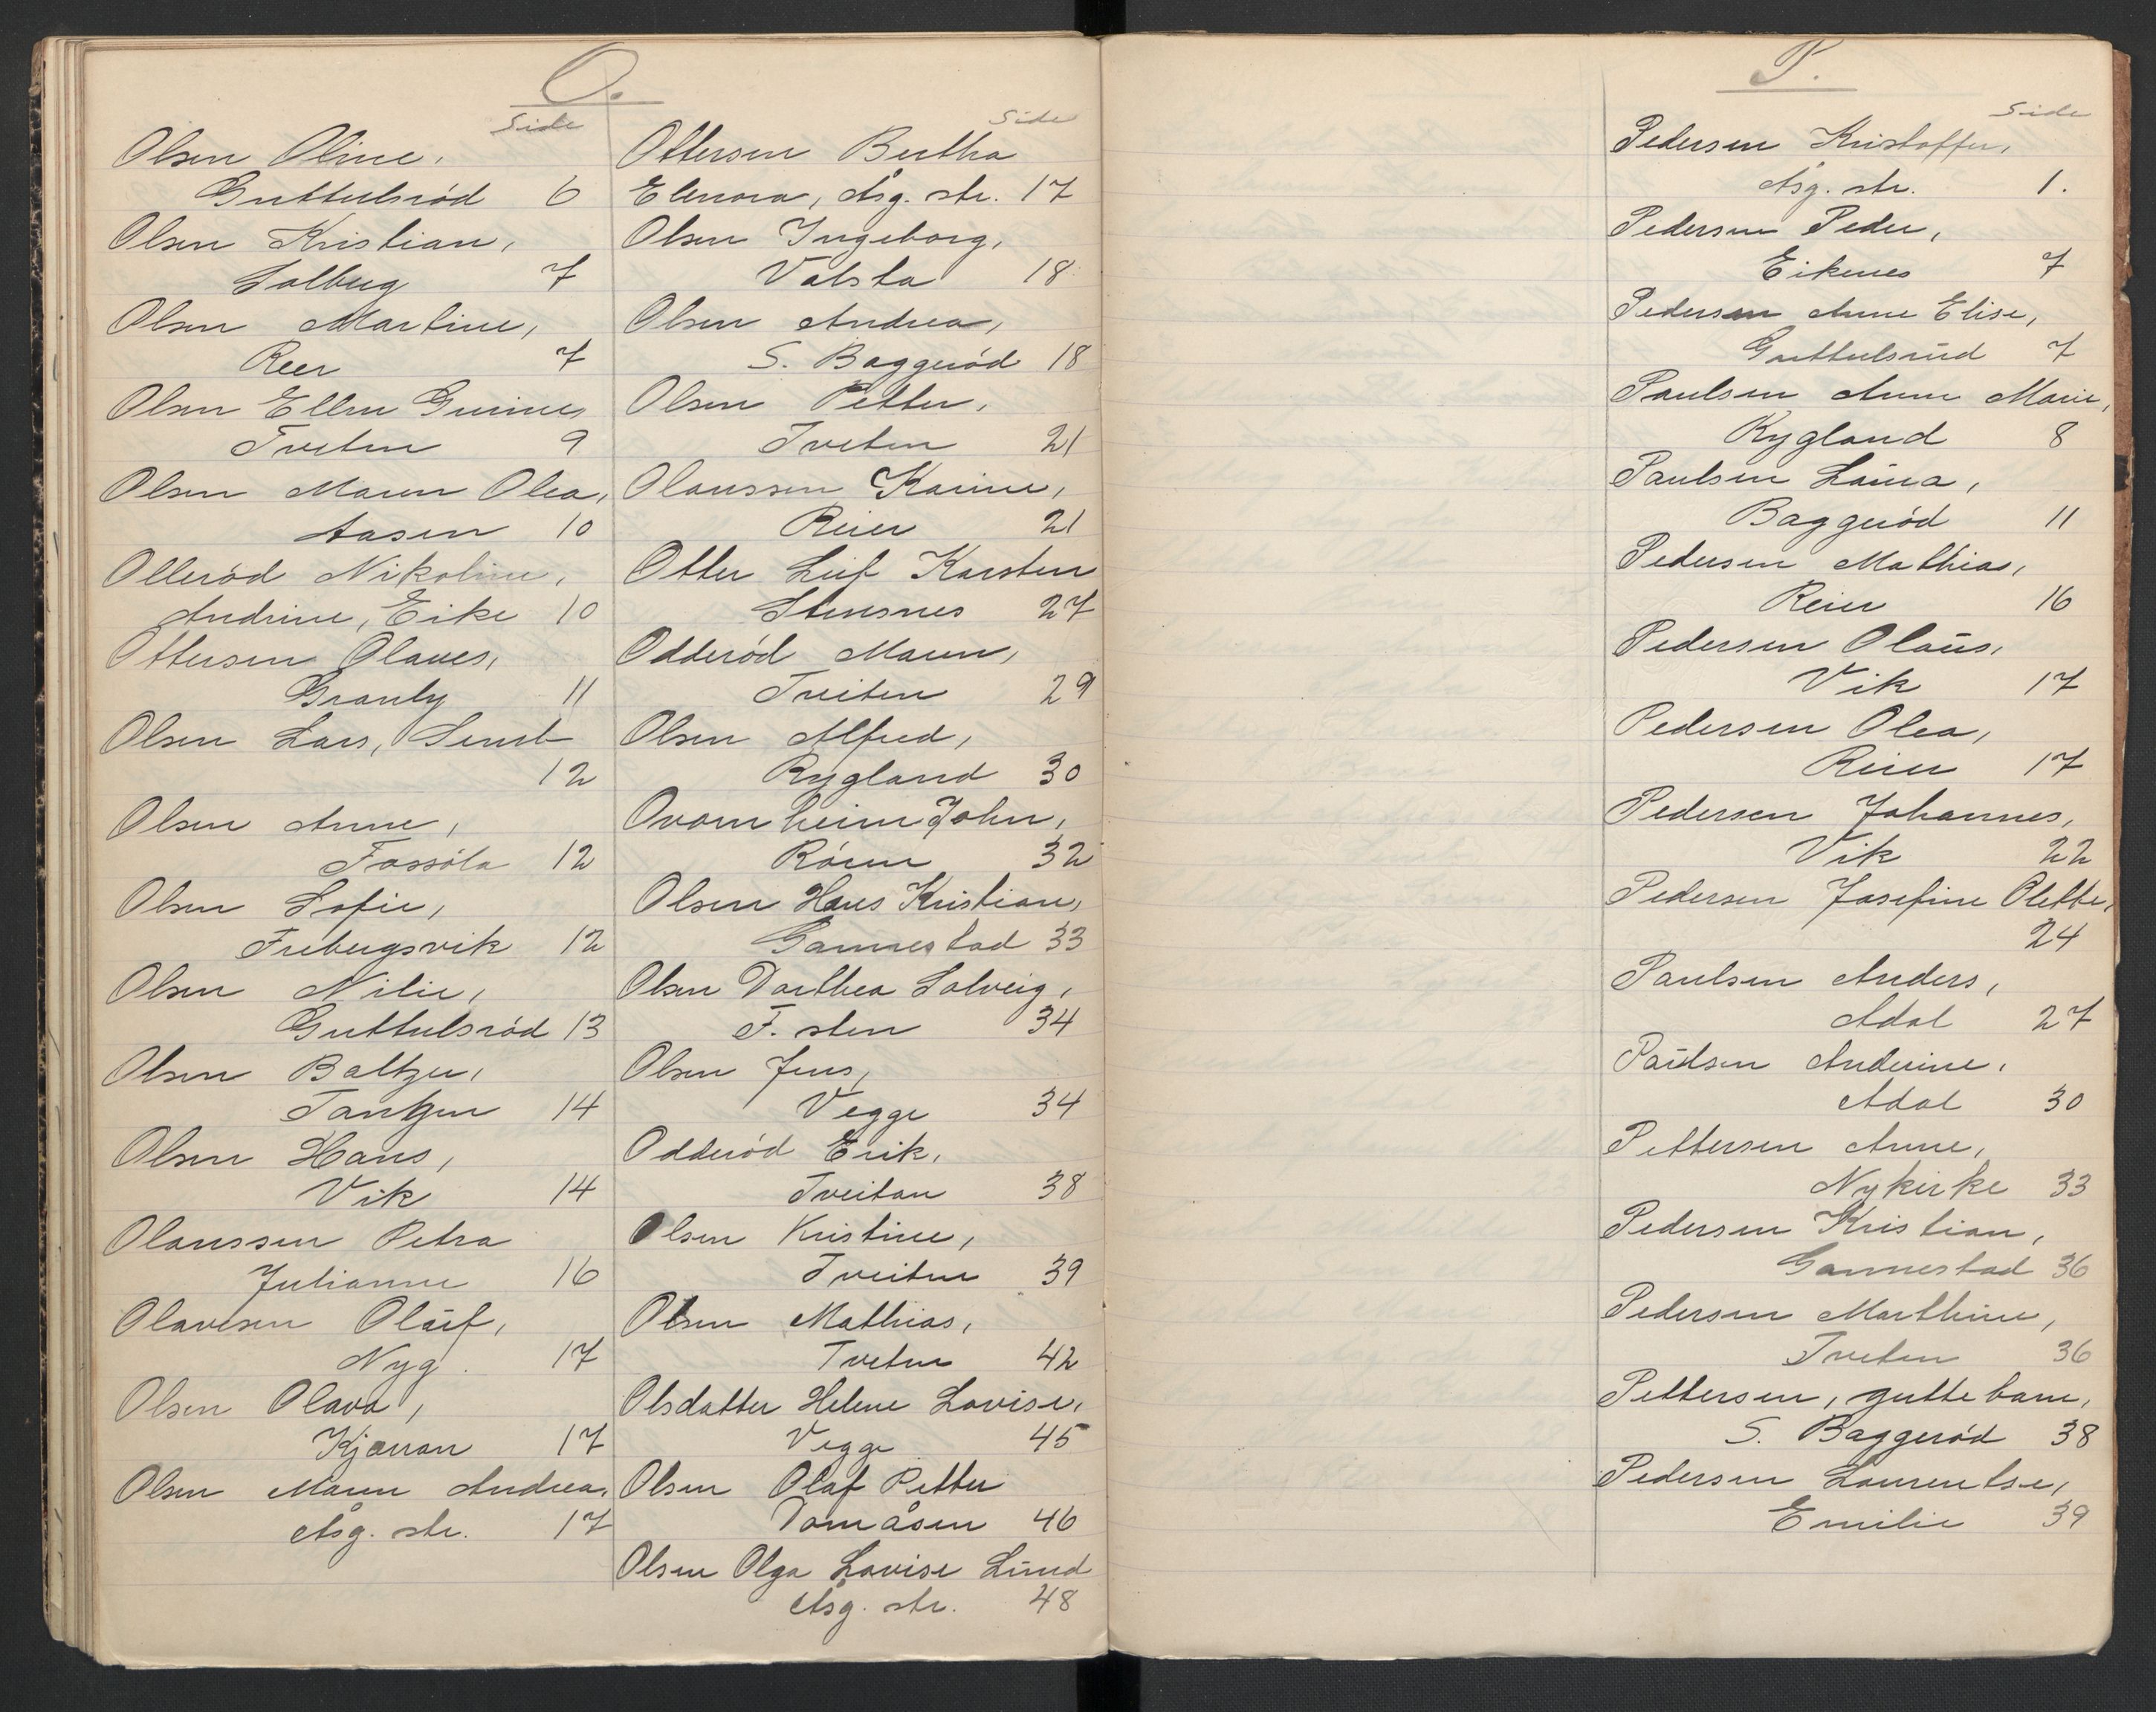 O.
Side
Olsen Oline,
Guttulsröd 6
Olsen Kristian,
Solberg 7
Olsen Martine,
Reer 7
Olsen Ellen Gurine,
Tveten 9
Olsen Maren Olea,
Aasen 10
Olleröd Nikoline,
Andrine, Eike 10
Ottersen Olaves,
Granly 11
Olsen Lars,
12
Olsen Anne,
Fossöla 12
Olsen Sofie,
Frebergsvik 12
Olsen Nilie,
Guttulsröd 13
Olsen Baltzer,
Tantzen 14
Olsen Hans,
Vik 14
Olaussen Petra
Julianne 16
Olavesen Olaŭf,
Nyg. 17
Olsen Olava,
Kjærran 17
Olsen Maren Andrea,
Åsg. str. 17
Side
Ottersen Bertha
Elenora, Åsg. str. 17
Olsen Ingeborg,
Valsta 18
Olsen Andrea,
S. Baggeröd 18
Olsen Petter,
Tveten 21
Olaussen Karine,
Reier 21
Otter Leif Karsten
Stensnes 27
Odderöd Maren,
Tveiten 29
Olsen Alfred,
Rygland 30
Ovamheim John,
Rören 32
Olsen Hans Kristian,
Gannestad 33
Olsen Dorthea Solveig,
F. sten 34
Olsen Jens,
Vegge 34
Odderöd Erik,
Tveitan 38
Olsen Kristine,
Tveiten 39
Olsen Mathias,
Tveten 42
Olsdatter Helene Lovise,
Vegge 45
Olsen Olaf Petter
Tomåsen 46
Olsen Olga Lovise Lŭnd
Åsg. str. 48
P.
Side
Pedersen Kristoffer,
Åsg. str. 1.
Pedersen Peder,
Eikenes 7
Pedersen Anne Elise,
Guttulsrŭd 7
Paulsen Anne Marie,
Rygland 8
Paulsen Laŭra,
Baggeröd 11
Pedersen Mathias,
Reier 16
Pedersen Olaŭs,
Vik 17
Pedersen Olea,
Reier 17
Pedersen Johannes,
Vik 22
Pedersen Josefine Olette,
24
Paulsen Anders,
Adal 27
Paŭlsen Anderine,
Adal 30
Pettersen Anne,
Nykirke 33
Pedersen Kristian,
Gannestad 36
Pedersen Marthine,
Tveten 36
Pettersen, guttebarn,
S. Baggeröd 38
Pedersen Laurentse,
Emilie 39